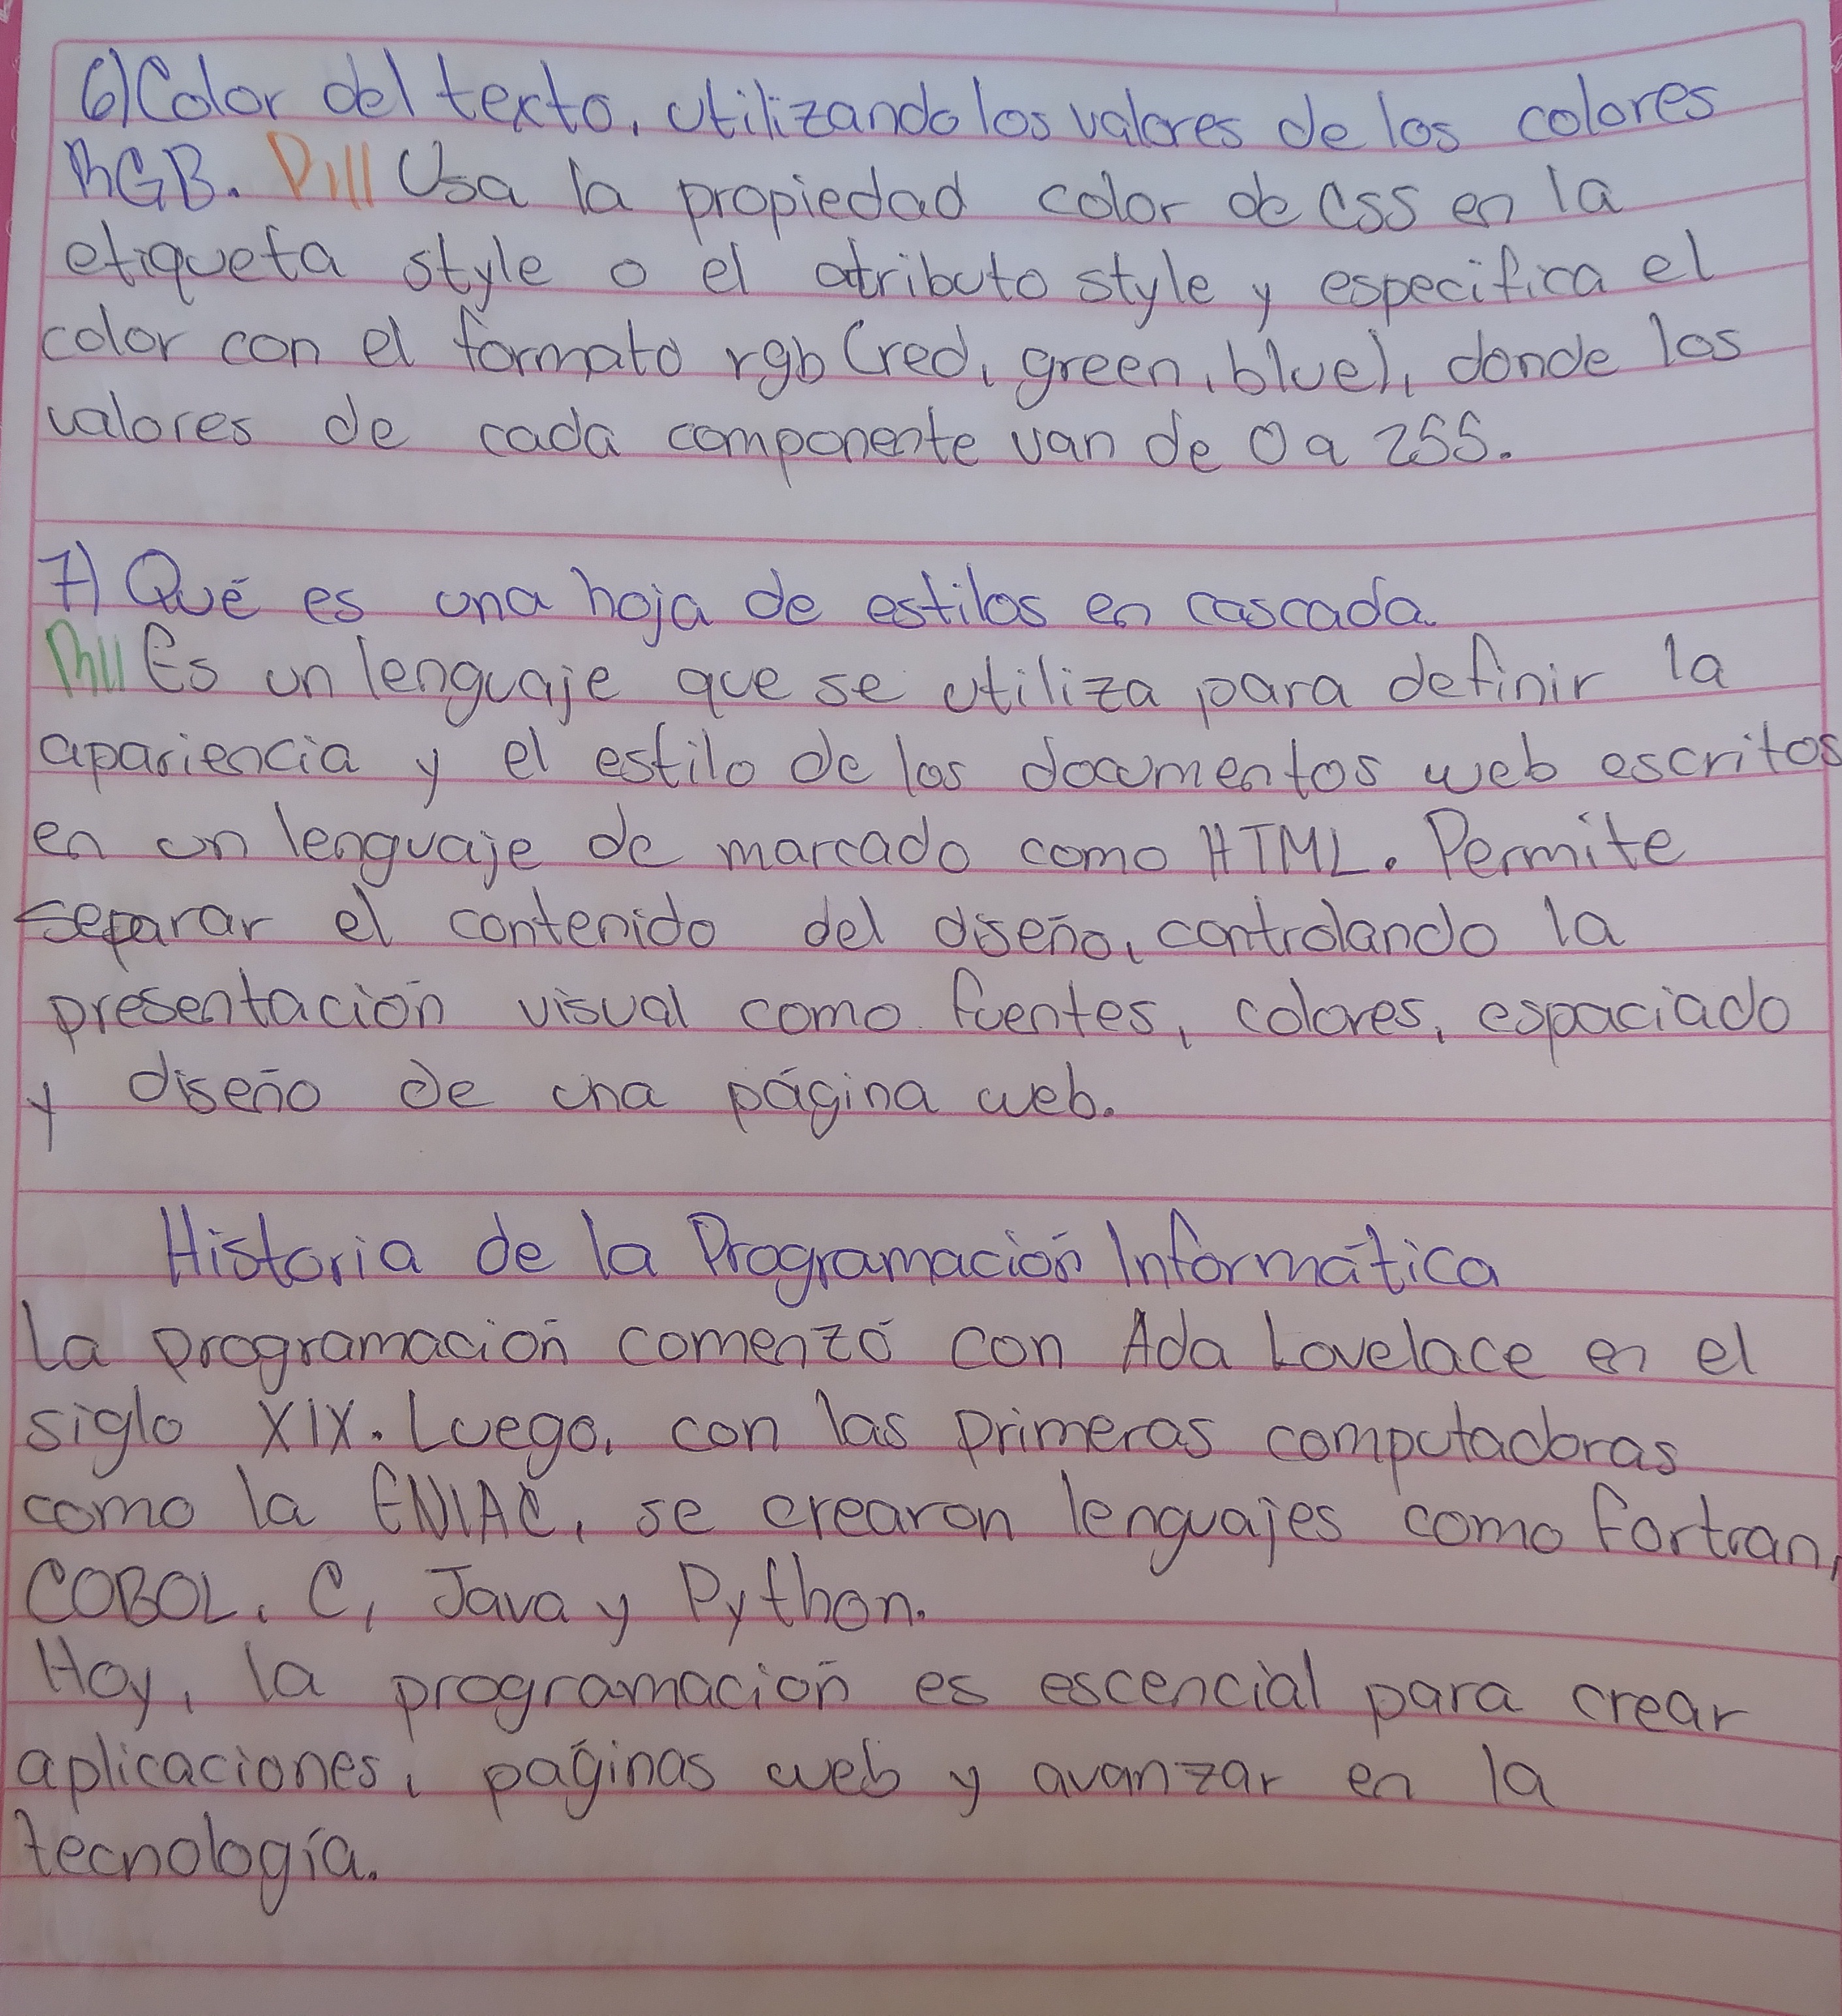 6) Color del texto, utilizando los valores de los colores
RGB. R// Usa la propiedad color de CSS en la
etiqueta style o el atributo style y especifica el
color con el formato rgb (red, green, blue), donde los
valores de cada componente van de 0 a 255.
7) Qué es una hoja de estilos en cascada.
R// Es un lenguaje que se utiliza para definir la
apariencia y el estilo de los documentos web escritos
en un lenguaje de marcado como HTML. Permite
separar el contenido del diseño, controlando la
presentación visual como fuentes, colores, espaciado
y diseño de una página web.
Historia de la Programación Informática
La programación comenzó con Ada Lovelace en el
siglo XIX. Luego, con las primeras computadoras
como la ENIAC, se crearon lenguajes como Fortran,
COBOL, C, Java y Python.
Hoy, la programación es escencial para crear
aplicaciones, páginas web y avanzar en la
tecnología.